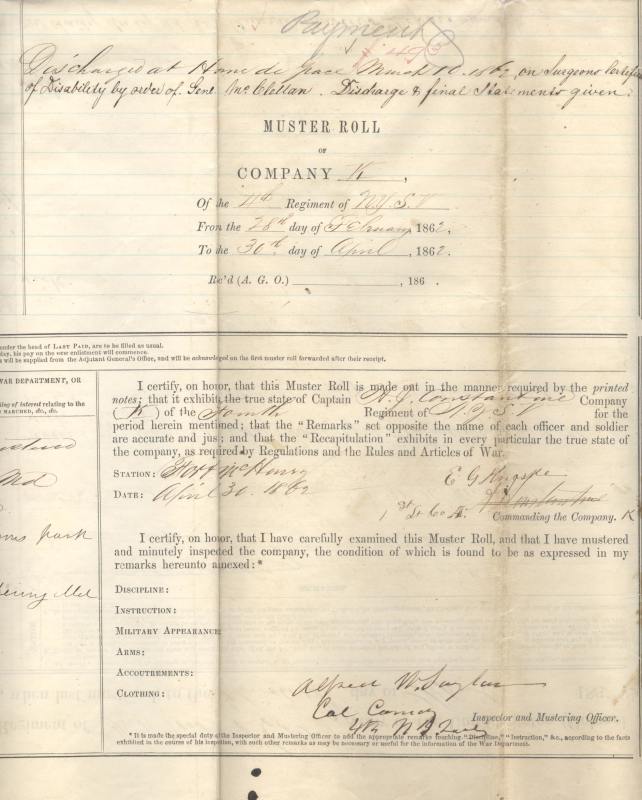 Payment
Discharged at Havre de Grace March 10. 1862, on Surgeons Certific
of Disability by order of Genl McClellan. Discharge & final Statements given.
MUSTER ROLL
OF
COMPANY K,
Of the 4th Regiment of N.Y.S.V
From the 28th day of February, 1862,
To the 30th day of April, 1862.
Rec'd (A. G. O.) , 186 .
under the head of LAST PAID, are to be filled as usual.
day, his pay on the new enlistment will commence.
will be supplied from the Adjutant General's Office, and will be acknowledged on the first muster roll forwarded after their receipt.
WAR DEPARTMENT, OR
ing of interest relating to the
MARCHED, &c., &c.
Md
park
Md
I certify, on honor, that this Muster Roll is made out in the manner required by the printed
notes; that it exhibits the true state of Captain Constantine Company
(K) of the Fourth Regiment of N.Y.S.V for the
period herein mentioned; that the "Remarks" set opposite the name of each officer and soldier
are accurate and just; and that the "Recapitulation" exhibits in every particular the true state of
the company, as required by Regulations and the Rules and Articles of War.
STATION: Fort McHenry
DATE: April 30. 1862
E G
1st Lt Co
Commanding the Company. K
I certify, on honor, that I have carefully examined this Muster Roll, and that I have mustered
and minutely inspected the company, the condition of which is found to be as expressed in my
remarks hereunto annexed:*
DISCIPLINE:
INSTRUCTION:
MILITARY APPEARANCE:
ARMS:
ACCOUTREMENTS:
CLOTHING:
Alfred W. Taylor
Col Comdg
4th N Y
Inspector and Mustering Officer.
* It is made the special duty of the Inspector and Mustering Officer to add the appropriate remarks touching "Discipline," "Instruction," &c., according to the facts
exhibited in the course of his inspection, with such other remarks as may be necessary or useful for the information of the War Department.